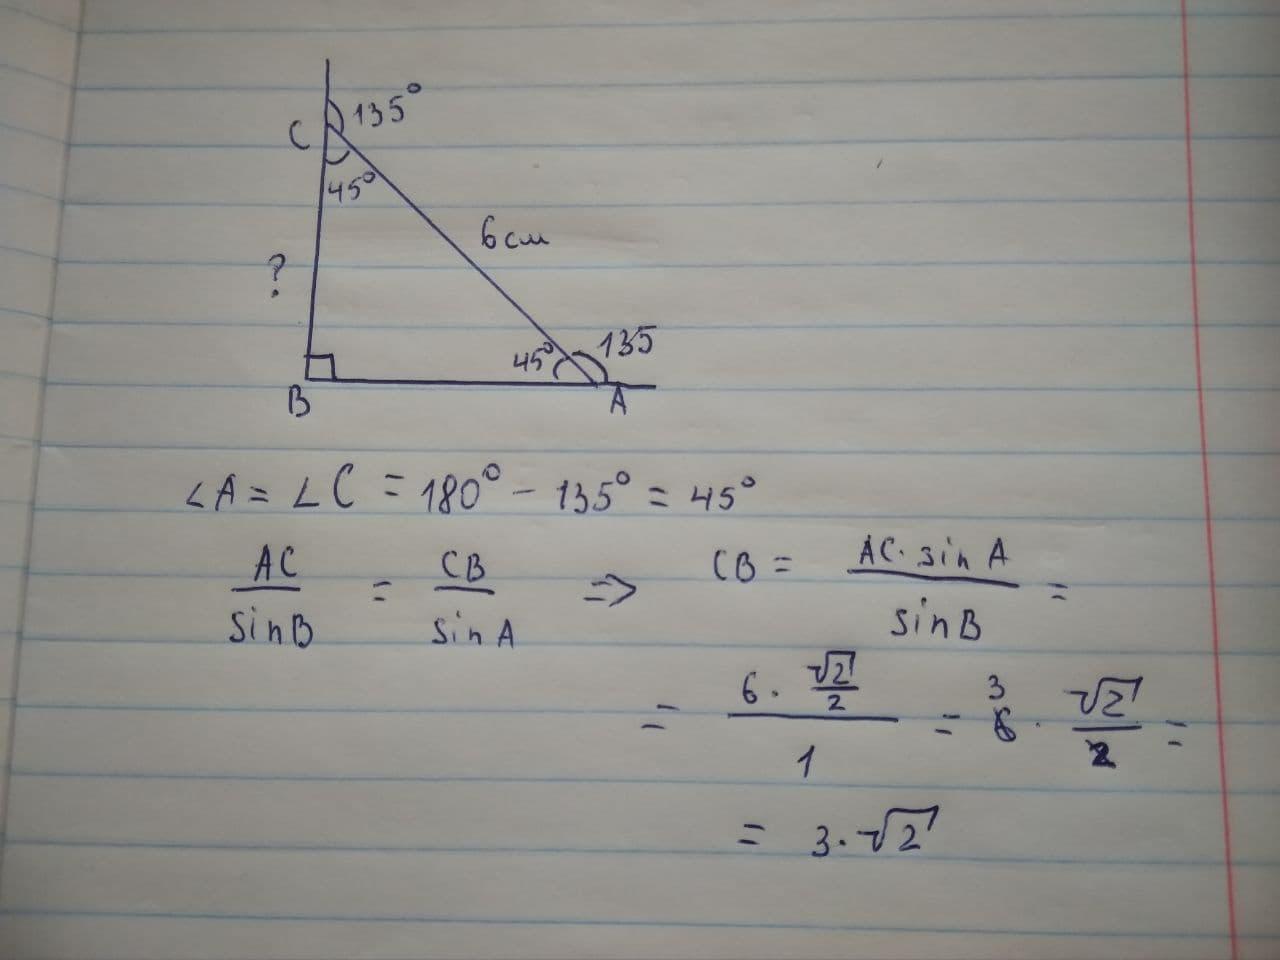 135°
C
45°
6 см
?
45° 135
B A
∠A = ∠C = 180° - 135° = 45°
AC/sin B = CB/sin A => CB = AC · sin A/sin B =
= 6 · √2/2/1 = 3 6 · √2/2 =
= 3 · √2